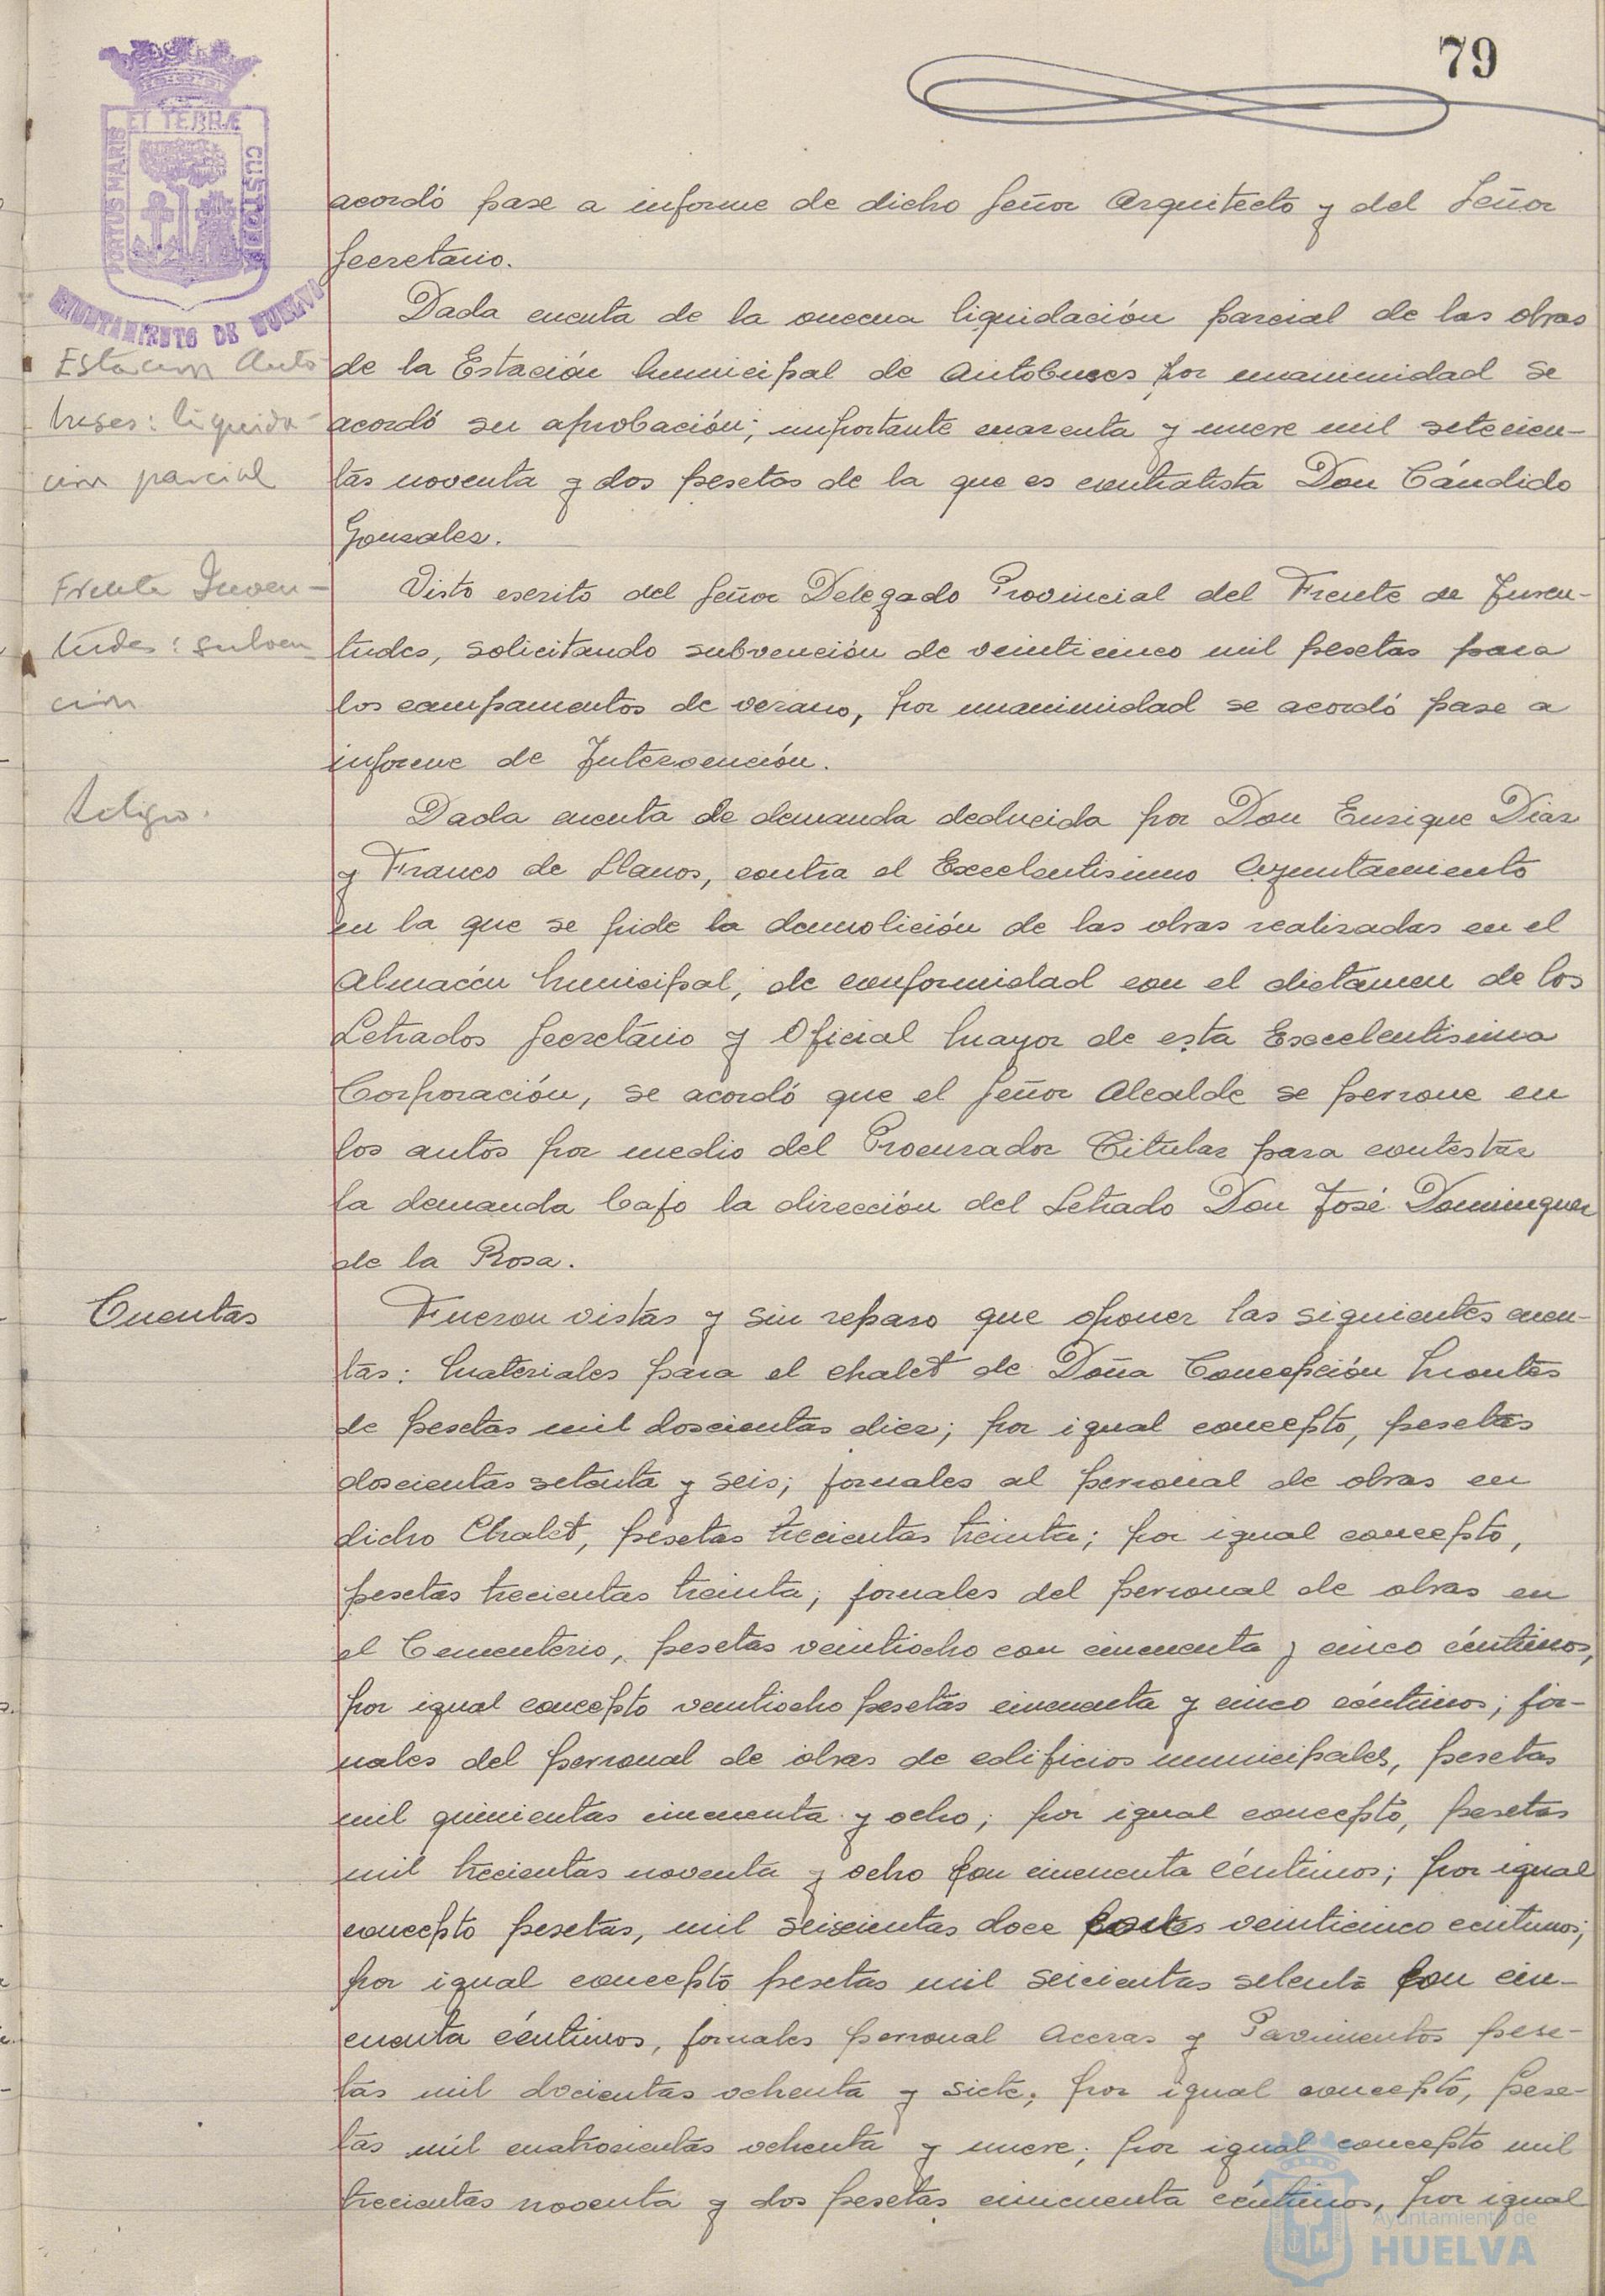 79
PORTUS MARIS
ET TERRÆ
CUSTODIA
AYUNTAMIENTO DE HUELVA
acordó pase a informe de dicho Señor Arquitecto y del Señor
Secretario.
Dada cuenta de la oncena liquidación parcial de las obras
Estacion Auto
de la Estación Municipal de Autobuses por unanimidad se
buses: liquida-
acordó su aprobación; importante cuarenta y nueve mil setecien-
cion parcial
tas noventa y dos pesetas de la que es contratista Don Cándido
Gonzalez.
Frente Juven-
Visto escrito del Señor Delegado Provincial del Frente de Juven-
tudes: subven-
tudes, solicitando subvención de veinticinco mil pesetas para
cion
los campamentos de verano, por unanimidad se acordó pase a
informe de Intervención.
Litigio.
Dada cuenta de demanda deducida por Don Enrique Diaz
y Franco de Llanos, contra el Excelentisimo Ayuntamiento
en la que se pide la demolición de las obras realizadas en el
Almacén Municipal, de conformidad con el dictamen de los
Letrados Secretario y Oficial Mayor de esta Excelentisima
Corporación, se acordó que el Señor Alcalde se persone en
los autos por medio del Procurador Titular para contestar
la demanda bajo la dirección del Letrado Don José Dominguez
de la Rosa.
Cuentas
Fueron vistas y sin reparo que oponer las siguientes cuen-
tas: Materiales para el chalet de Doña Concepción Montes
de pesetas mil doscientas diez; por igual concepto, pesetas
doscientas setenta y seis; jornales al personal de obras en
dicho Chalet, pesetas trecientas treinta; por igual concepto,
pesetas trecientas treinta; jornales del personal de obras en
el Cementerio, pesetas veintiocho con cincuenta y cinco céntimos,
por igual concepto veintiocho pesetas cincuenta y cinco céntimos; jor-
nales del personal de obras de edificios municipales, pesetas
mil quinientas cincuenta y ocho; por igual concepto, pesetas
mil trecientas noventa y ocho con cincuenta céntimos; por igual
concepto pesetas, mil seiscientas doce veinticinco centimos;
por igual concepto pesetas mil seicientas setenta con cin-
cuenta céntimos, jornales personal Aceras y Pavimentos pese-
tas mil docientas ochenta y siete; por igual concepto, pese-
tas mil cuatrocientas ochenta y nueve; por igual concepto mil
trecientas noventa y dos pesetas cincuenta céntimos, por igual
Ayuntamiento de
HUELVA